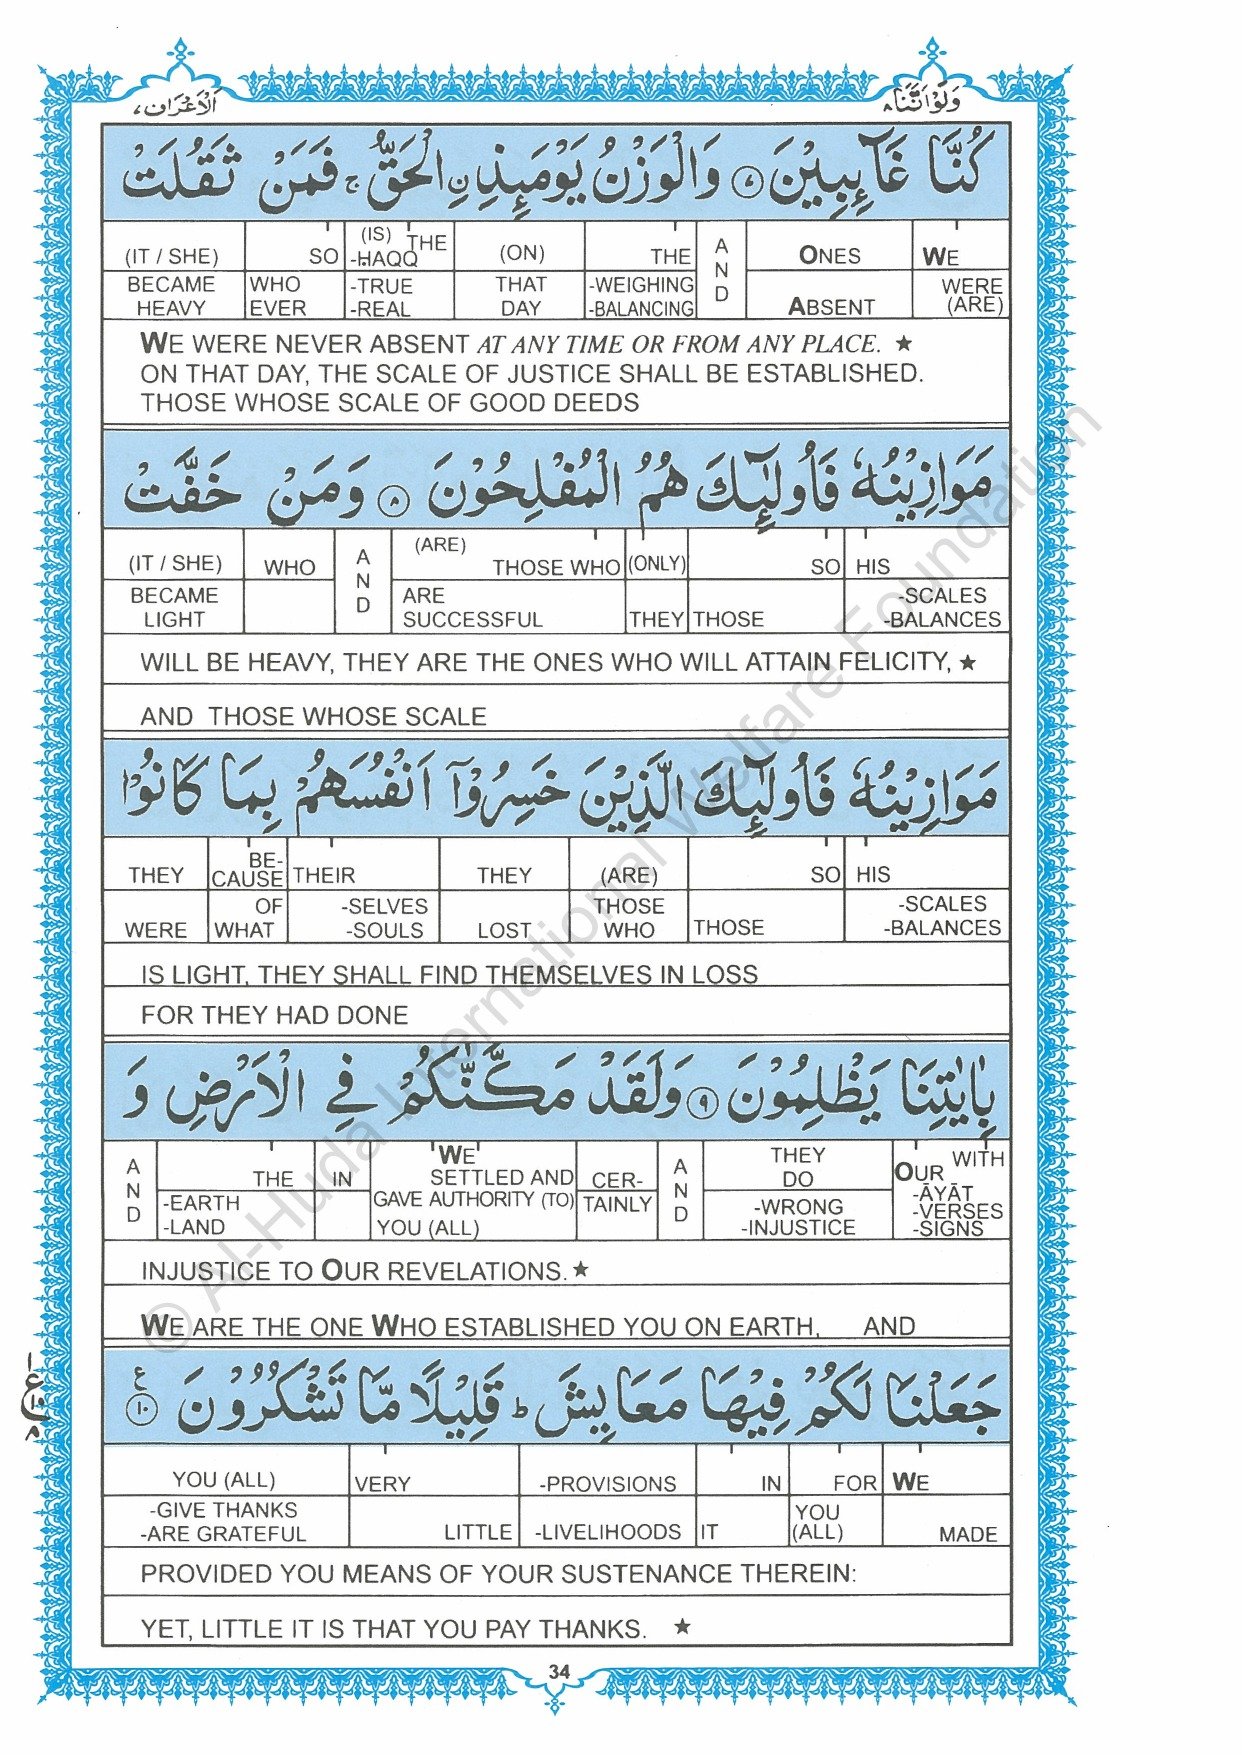 وَلَوْ اَنَّنَا ٨
اَلْاَعْرَاف ٧
كُنَّا غَآئِبِيْنَ ۝٧ وَالْوَزْنُ يَوْمَئِذِ نِ الْحَقُّ ج فَمَنْ ثَقُلَتْ
(IT / SHE) SO (IS) THE -ḤAQQ (ON) THE AND ONES WE
BECAME HEAVY WHO EVER -TRUE -REAL THAT DAY -WEIGHING -BALANCING ABSENT WERE (ARE)
WE WERE NEVER ABSENT AT ANY TIME OR FROM ANY PLACE. ★
ON THAT DAY, THE SCALE OF JUSTICE SHALL BE ESTABLISHED.
THOSE WHOSE SCALE OF GOOD DEEDS
مَوَازِيْنُهٗ فَاُولٰٓئِكَ هُمُ الْمُفْلِحُوْنَ ۝٨ وَمَنْ خَفَّتْ
(IT / SHE) WHO AND (ARE) THOSE WHO (ONLY) SO HIS
BECAME LIGHT ARE SUCCESSFUL THEY THOSE -SCALES -BALANCES
WILL BE HEAVY, THEY ARE THE ONES WHO WILL ATTAIN FELICITY, ★
AND THOSE WHOSE SCALE
مَوَازِيْنُهٗ فَاُولٰٓئِكَ الَّذِيْنَ خَسِرُوْٓا اَنْفُسَهُمْ بِمَا كَانُوْا
THEY BE-CAUSE THEIR THEY (ARE) SO HIS
WERE OF WHAT -SELVES -SOULS LOST THOSE WHO THOSE -SCALES -BALANCES
IS LIGHT, THEY SHALL FIND THEMSELVES IN LOSS
FOR THEY HAD DONE
بِاٰيٰتِنَا يَظْلِمُوْنَ ۝٩ وَلَقَدْ مَكَّنّٰكُمْ فِي الْاَرْضِ وَ
AND THE IN WE SETTLED AND CER- AND THEY DO OUR WITH
-EARTH -LAND GAVE AUTHORITY (TO) YOU (ALL) TAINLY -WRONG -INJUSTICE -ĀYĀT -VERSES -SIGNS
INJUSTICE TO OUR REVELATIONS. ★
WE ARE THE ONE WHO ESTABLISHED YOU ON EARTH, AND
جَعَلْنَا لَكُمْ فِيْهَا مَعَايِشَ ط قَلِيْلًا مَّا تَشْكُرُوْنَ ۝١٠ ع
YOU (ALL) VERY -PROVISIONS IN FOR WE
-GIVE THANKS -ARE GRATEFUL LITTLE -LIVELIHOODS IT YOU (ALL) MADE
PROVIDED YOU MEANS OF YOUR SUSTENANCE THEREIN:
YET, LITTLE IT IS THAT YOU PAY THANKS. ★
١
ع ١٠
٨
34
© Al-Huda International Welfare Foundation